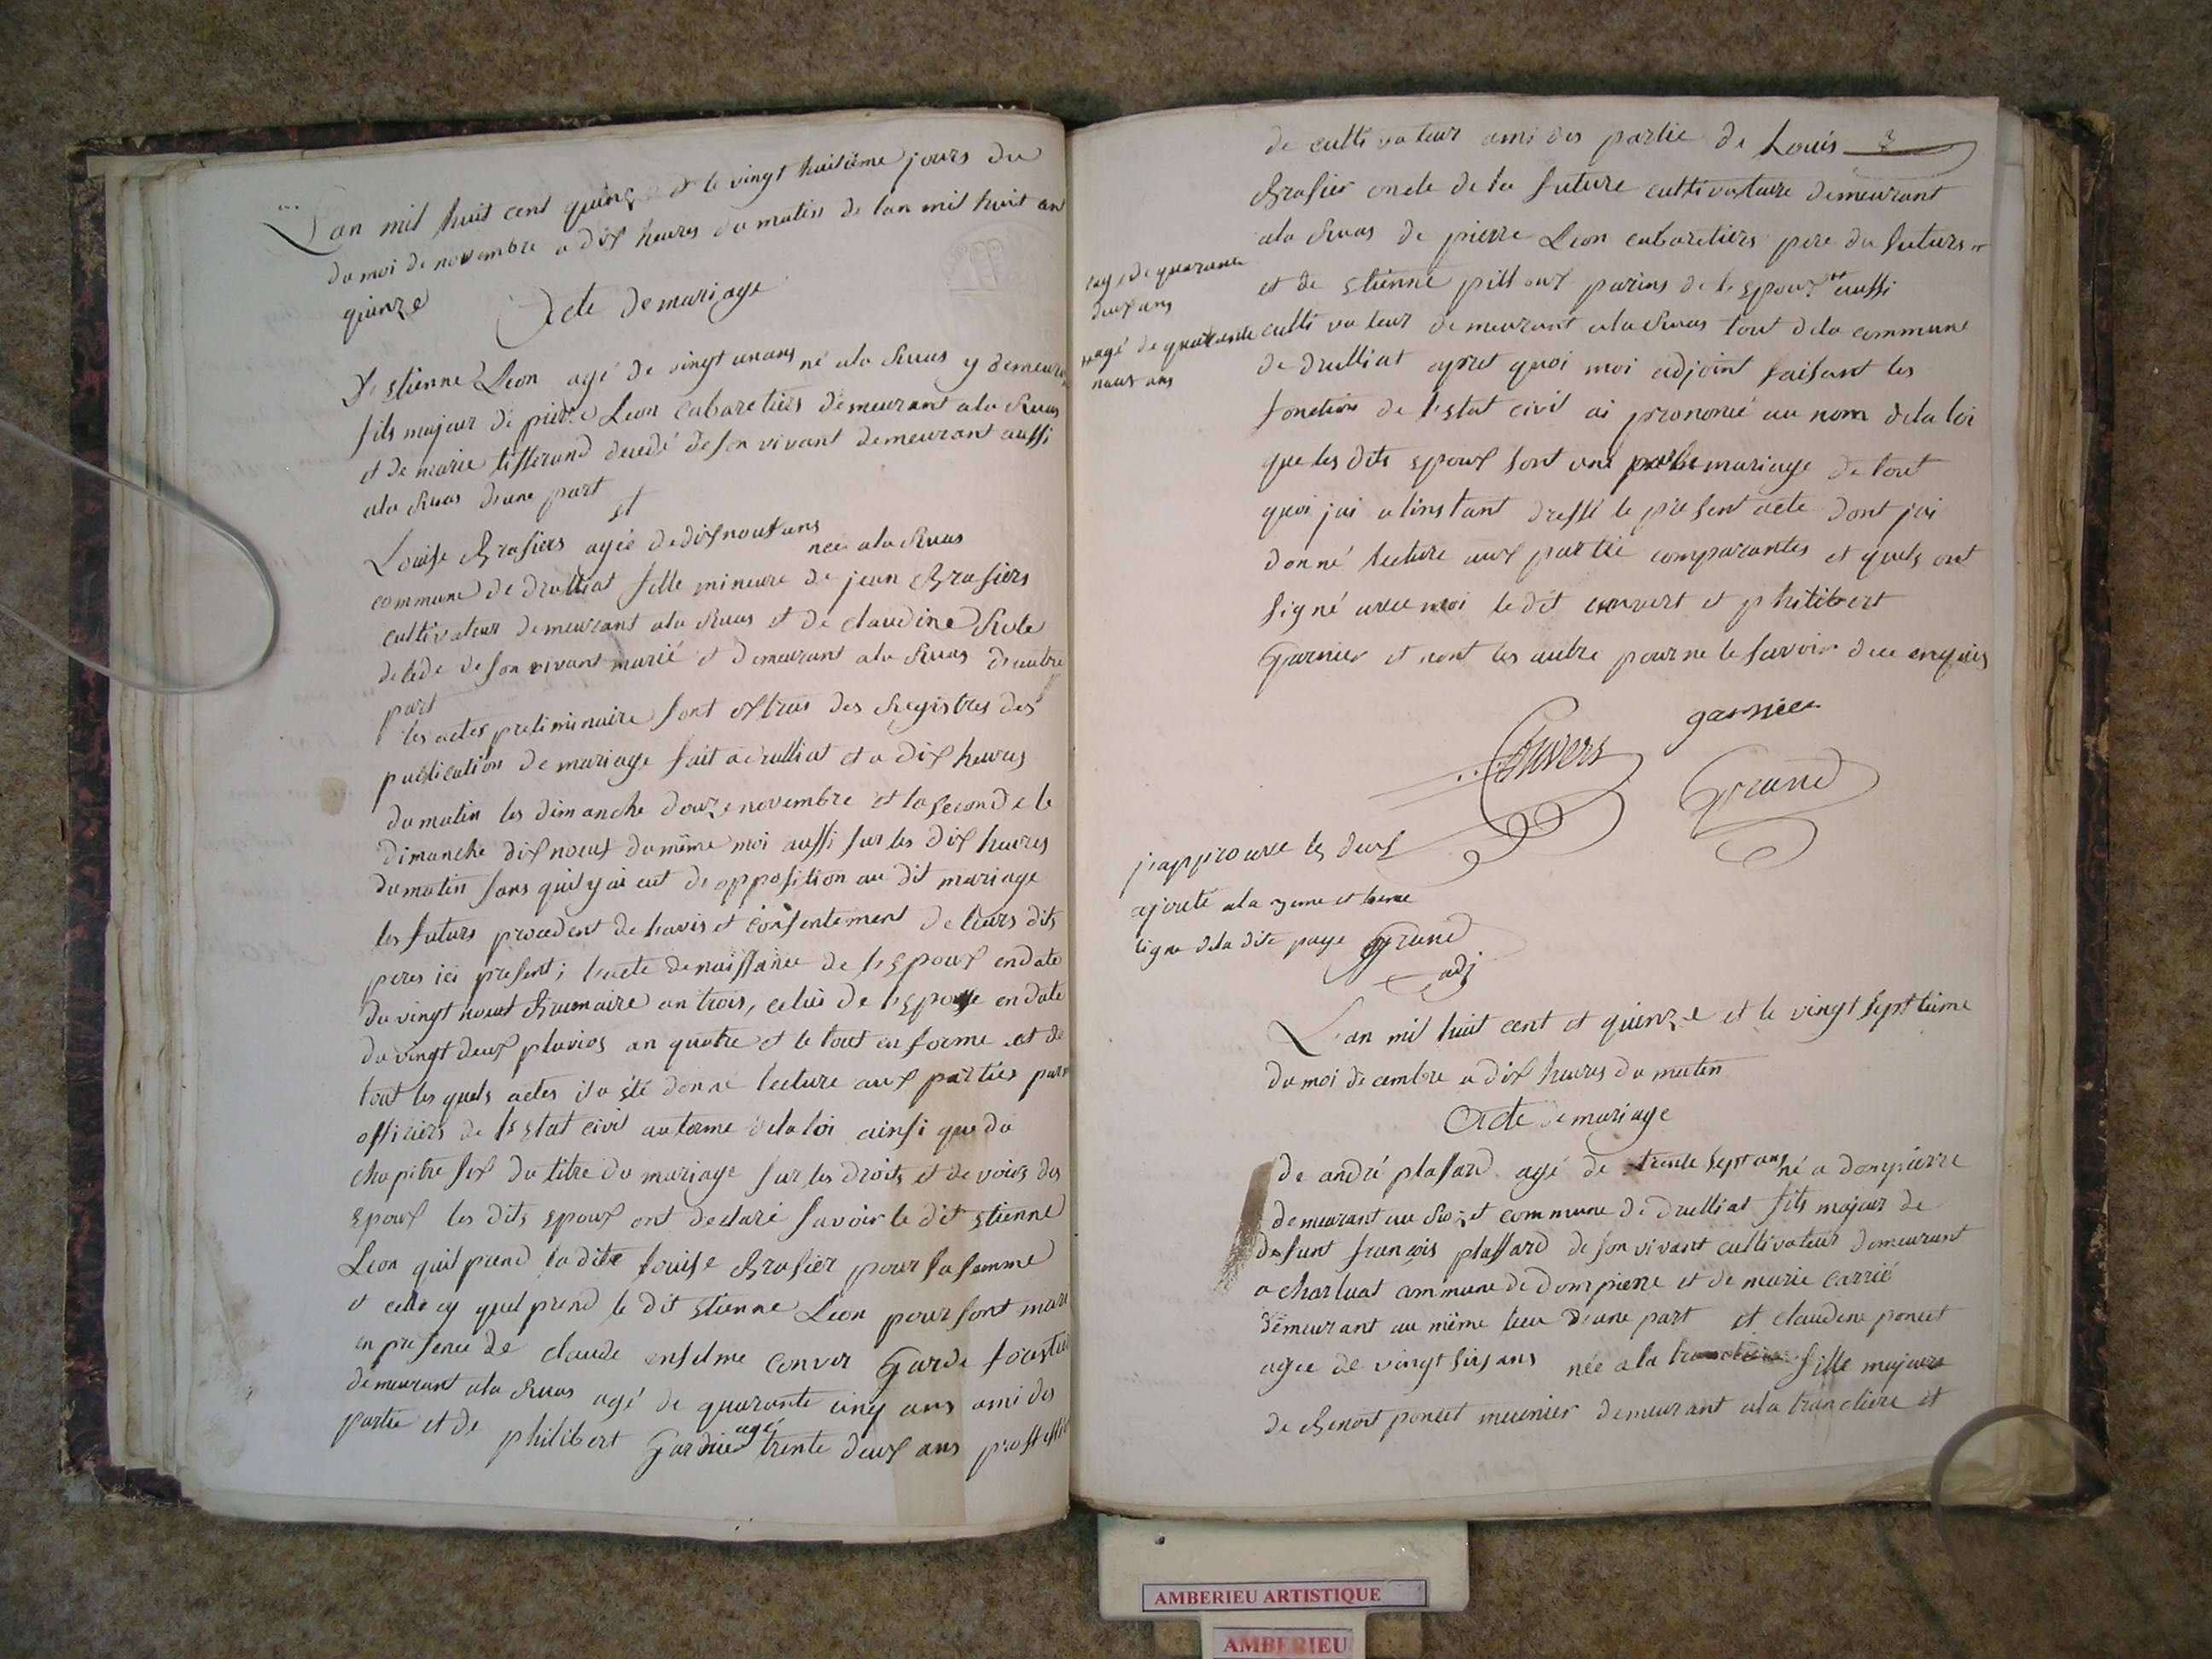 L'an mil huit cent quinz et le vingt huitième jours du
du moi de novembre a dix heures du matin de lan mil huit an
quinze
Acte de mariage
D'Etienne Leon agé de vingt un ans né ala Ruas y demeur
fils majeur de pierre Leon cabaretiers demeurant ala Ruas
et de marie tisserand decedé de son vivant demeurant aussi
ala Ruas d'une part
et
Louise Brasiers agée de dix nouf ans née ala Ruas
commune de druilliat fille mineure de jean Brasiers
cultivateur demeurant ala Ruas et de claudine
de son vivant marié et demeurant ala Ruas d'autre
part
les actes preliminaire sont extrai des Registres des
publication de mariage fait a druilliat et a dix heures
du matin les dimanche douze novembre et la seconde le
dimanche dix nouf du même moi aussi sur les dix heures
du matin sans quil y ai eut de opposition au dit mariage
les futurs procedent de l'avis et consentement de leurs dits
peres ici present; l'acte de naissance de l'Epoux en date
du vingt nouf Brumaire an trois, celui de l'Epouse en date
du vingt deux pluvios an quatre et le tout en forme et de
tout les quels actes il a été donné lecture aux parties par
officiers de l'Etat civil au terme de la loi ainsi que du
chapitre six du titre du mariage sur les droits et devoirs des
Epoux les dits Epoux ont declaré savoir le dit Etienne
Leon quil prend la dite Louise Brasier pour sa femme
et celle cy quel prend le dit Etienne Leon pour sont mari
en presence de claude enselme conver Garde forestie
demeurant ala Ruas agé de quarante cinq ans ami des
partie et de philibert Garnier agé trente deux ans
de cultivateur ami des partie de Louis
Brasier oncle de la future cultivataire demeurant
ala Ruas de pierre Leon cabaretiers pere du futurs
et de Etienne pilloux parins de l'epoux aussi
agé de quarante
deux ans
agé de quarante
nouf ans
cultivateur demeurant ala Ruas tout dela commune
de druilliat apret quoi moi adjoint faisant les
fonction de l'Etat civil ai prononcé au nom dela loi
que les dits Epoux sont uni par le mariage de tout
quoi jai a linstant dressé le present acte dont jai
donné lecture aux partie comparantes et quels ont
signé avec moi le dit convert et philibert
Garnier et nont les autre pour ne le savoir
garnier
Convers
Grand
j'approuve les deux
ajouté ala et
ligne dela dite page Grand
adj
L'an mil huit cent et quinze et le vingt septtième
du moi decembre a dix heures du matin
Acte de mariage
de andré plassard agé de trente sept ans né a dompierre
demeurant au commune de druilliat fils majeur de
defunt francois plassard de son vivant cultivateur demeurant
a commune de dompierre et de marie carrié
demeurant au même lieu d'une part et claudene poncet
agée de vingt six ans née a la fille majeure
de Benoit poncet meunier demeurant ala trancliere et
AMBERIEU ARTISTIQUE
AMBERIEU